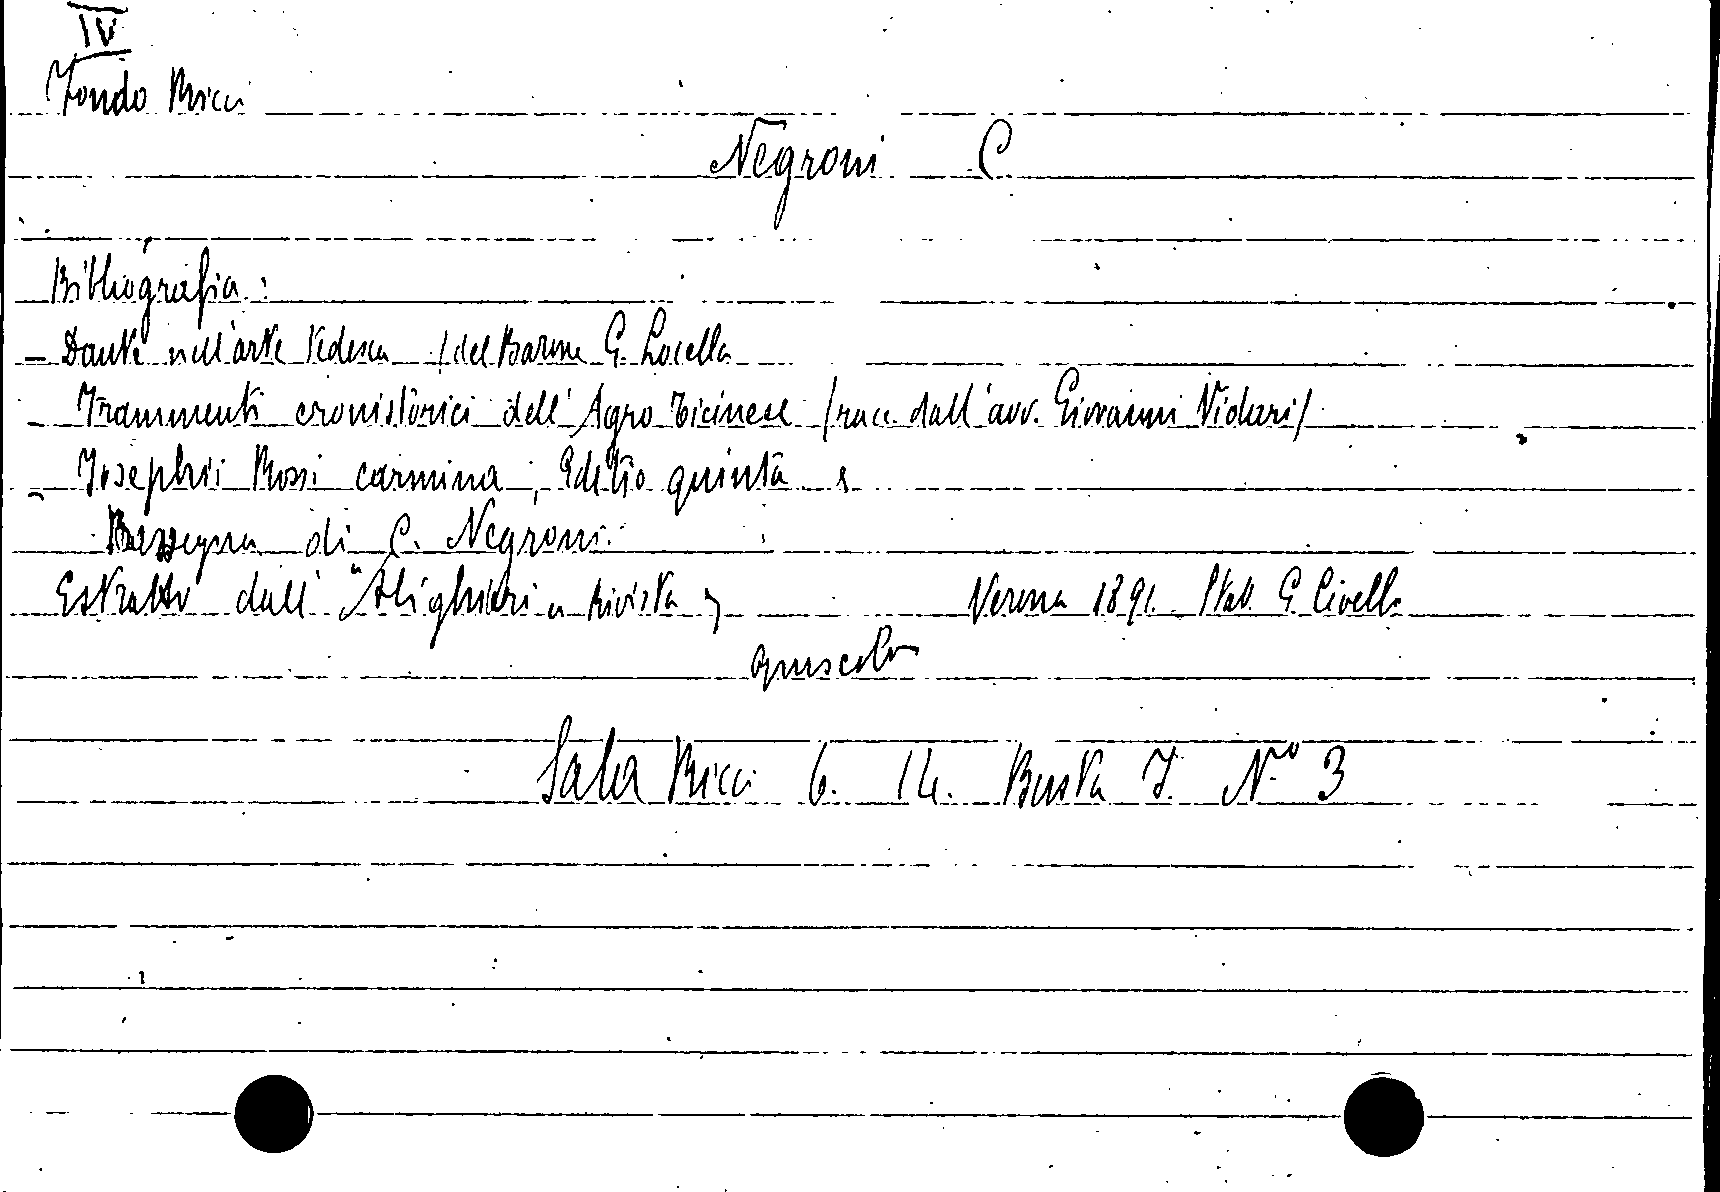 IV
Fondo Ricci
Negroni C.
Bibliografia:
- Dante nell'arte tedesca (del Barone G. Locella
- Frammenti cronistorici dell'Agro Ticinese (racc. dall'avv. Giovanni Vidari)
- Josephi Rossi carmina, Editio quinta
Rassegna di C. Negroni.
Estratto dall' "Alighieri" Rivista, Verona 1891. Stab. G. Civelli
opuscolo
Sala Ricci 6. 14. Busta I. N.º 3